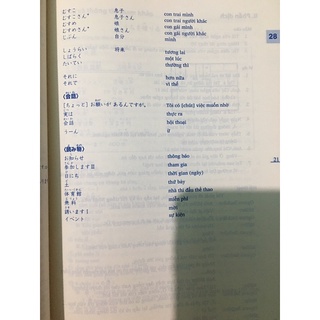 むすこ 息子 con trai mình
むすこさん* 息子さん con trai người khác
むすめ 娘 con gái mình
むすめさん* 娘さん con gái người khác
じぶん 自分 mình
28
しょうらい 将来 tương lai
しばらく một lúc
たいてい thường thì
それに hơn nữa
それで vì thế
〈会話〉
[ちょっと] お願いが あるんですが。 Tôi có (chút) việc muốn nhờ
実は thực ra
会話 hội thoại
うーん ừ
〈読み物〉
お知らせ thông báo
参加しますⅢ tham gia
21
日にち thời gian (ngày)
土 thứ bảy
体育館 nhà thi đấu thể thao
無料 miễn phí
誘いますⅠ mời
イベント sự kiện